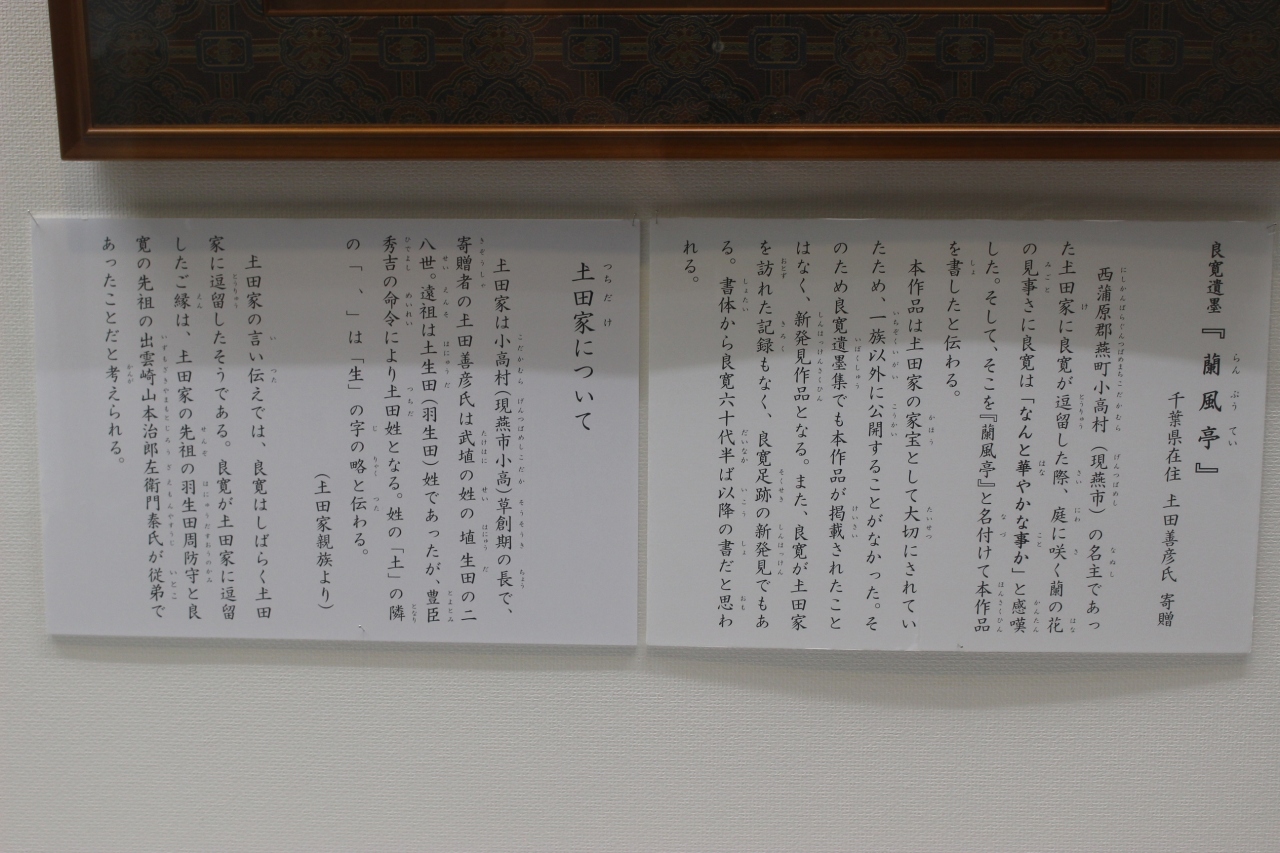 良寛遺墨『蘭風亭』
千葉県在住 土田善彦氏 寄贈
西蒲原郡燕町小高村（現燕市）の名主であっ
た土田家に良寛が逗留した際、庭に咲く蘭の花
の見事さに良寛は「なんと華やかな事か」と感嘆
した。そして、そこを『蘭風亭』と名付けて本作品
を書したと伝わる。
本作品は土田家の家宝として大切にされてい
たため、一族以外に公開することがなかった。そ
のため良寛遺墨集でも本作品が掲載されたこと
はなく、新発見作品となる。また、良寛が土田家
を訪れた記録もなく、良寛足跡の新発見でもあ
る。書体から良寛六十代半ば以降の書だと思わ
れる。
土田家について
土田家は小高村（現燕市小高）草創期の長で、
寄贈者の土田善彦氏は武埴の姓の 埴生田の二
八世。遠祖は土生田（羽生田）姓であったが、豊臣
秀吉の命令により土田姓となる。姓の「土」の隣
の「、」は「生」の字の略と伝わる。
（土田家親族より）
土田家の言い伝えでは、良寛はしばらく土田
家に逗留したそうである。良寛が土田家に逗留
したご縁は、土田家の先祖の羽生田周防守と良
寛の先祖の出雲崎山本治郎左衛門泰氏が従弟で
あったことだと考えられる。